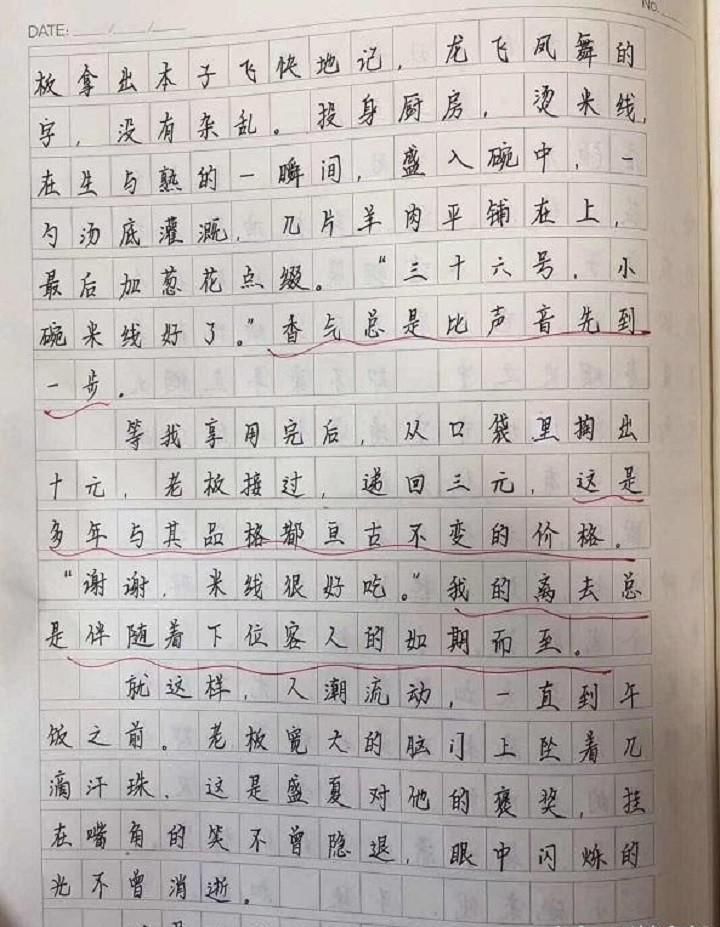 DATE: NO.
板拿出本子飞快地记，龙飞凤舞的
字，没有杂乱。投身厨房，烫米线，
在生与熟的一瞬间，盛入碗中，一
勺汤底灌溉，几片羊肉平铺在上，
最后加葱花点缀。“三十六号，小
碗米线好了。”香气总是比声音先到
一步。
等我享用完后，从口袋里掏出
十元，老板接过，递回三元，这是
多年与其品格都亘古不变的价格。
“谢谢，米线很好吃。”我的离去总
是伴随着下位客人的如期而至。
就这样，人潮流动，一直到午
饭之前。老板宽大的脑门上坠着几
滴汗珠，这是盛夏对他的褒奖，挂
在嘴角的笑不曾隐退，眼中闪烁的
光不曾消逝。